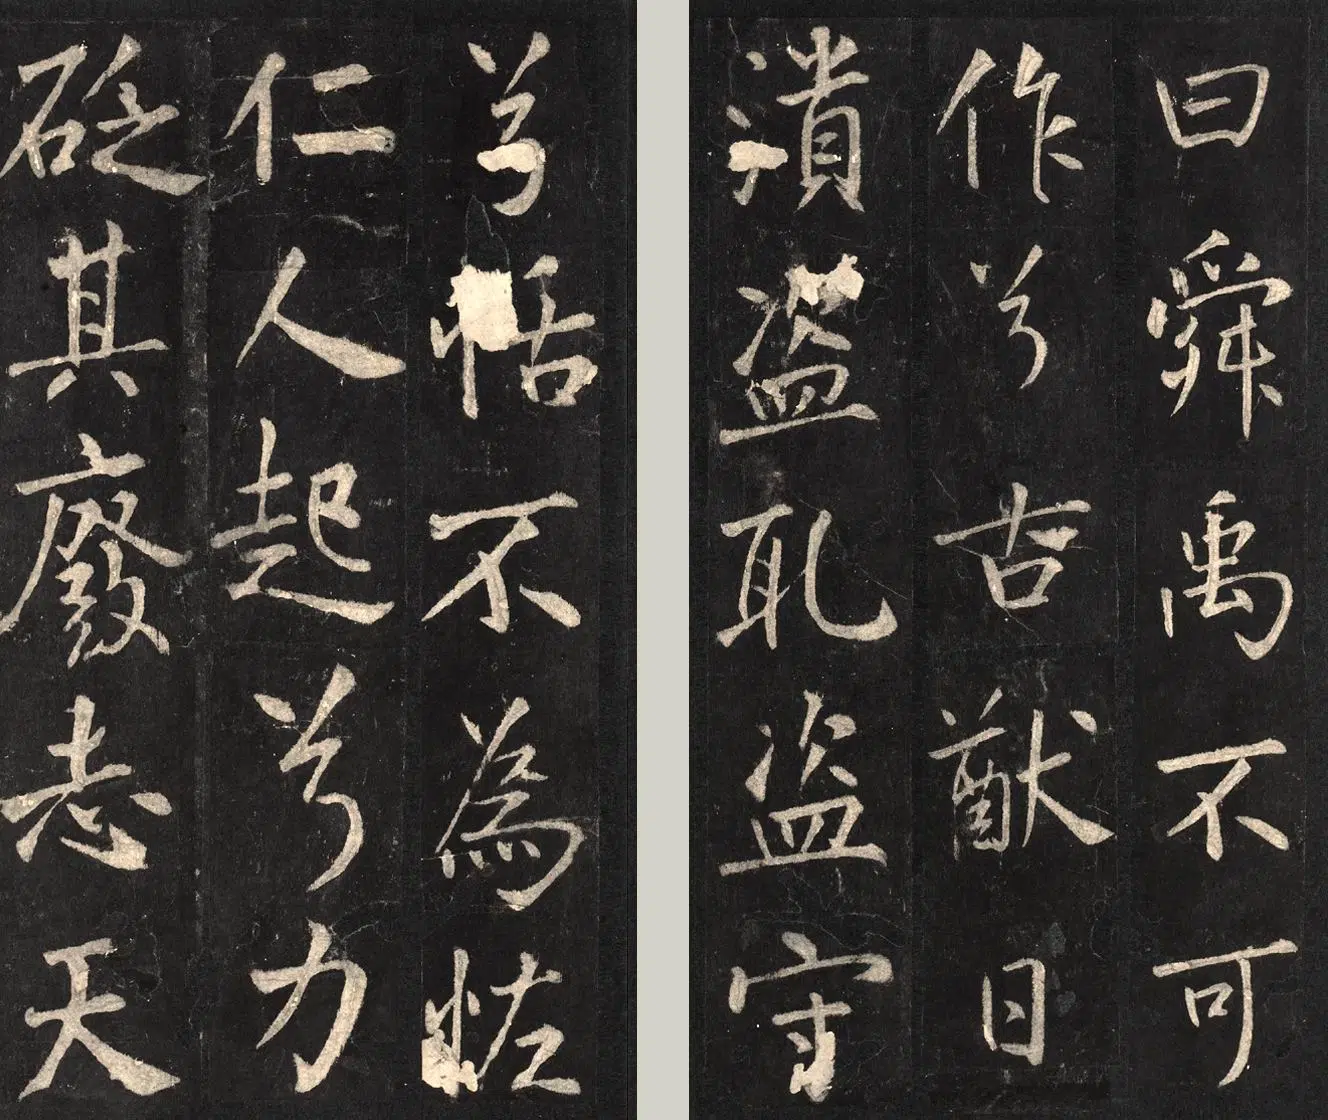 曰舜禹不可
作兮古猷日
潰盜耴盜守
兮恬不為怪
仁人起兮力
砭其廢志天